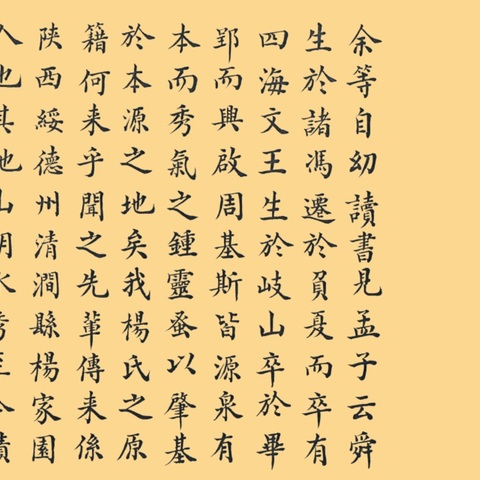 余等自幼讀書見孟子云舜
生於諸馮遷於負夏而卒有
四海文王生於岐山卒於畢
郢而興啟周基斯皆源泉有
本而秀氣之鍾靈蚤以肇基
於本源之地矣我楊氏之原
籍何来乎聞之先輩傳来係
陝西綏德州清澗縣楊家園
人也其地山明水秀至今